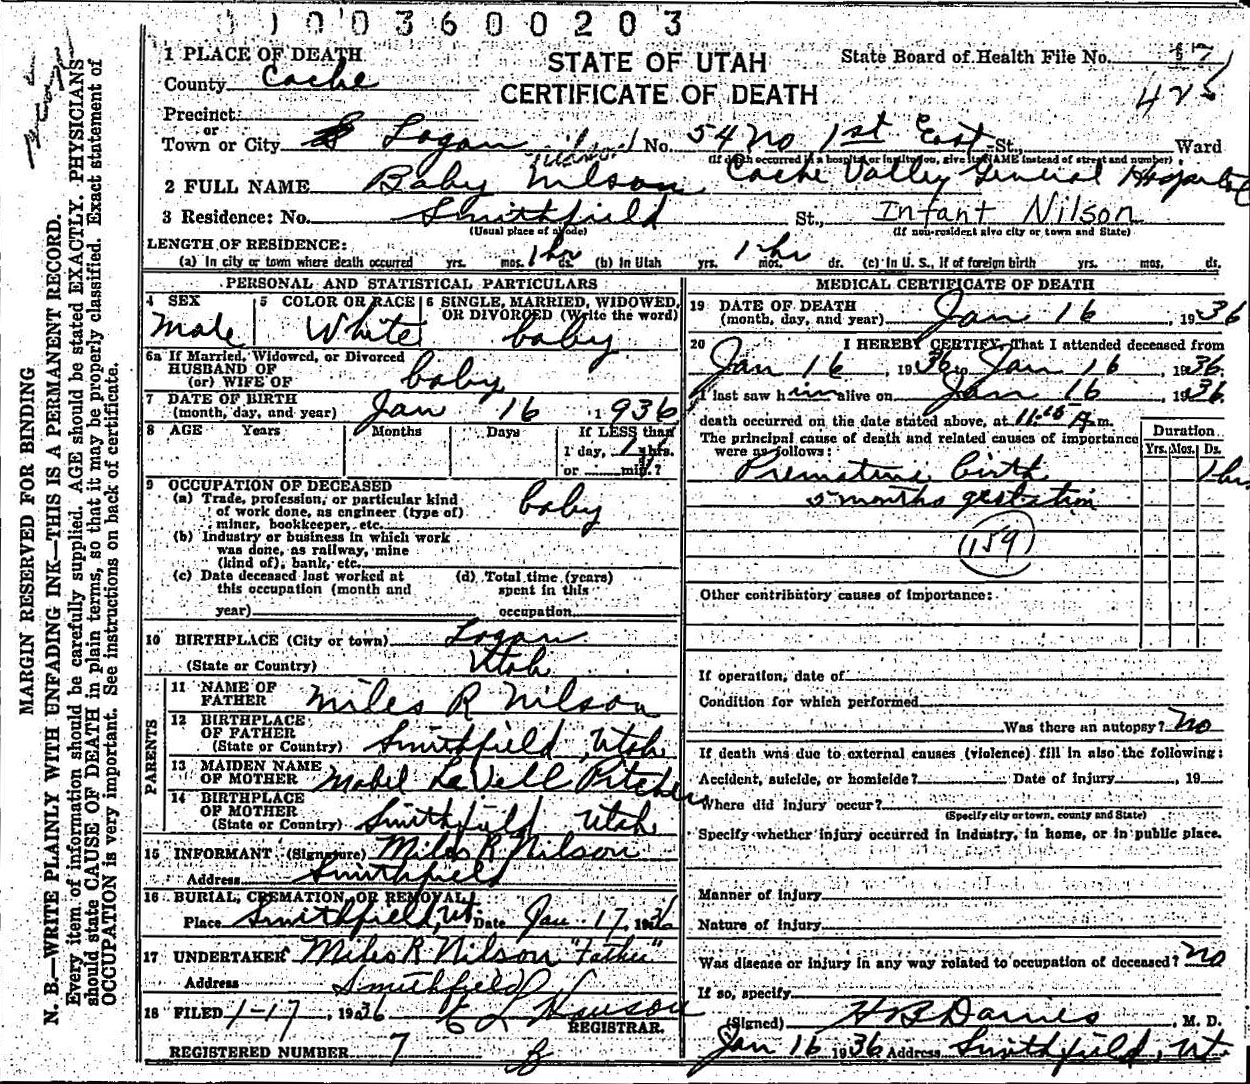 1 1 0 0 3 6 0 0 2 0 3
STATE OF UTAH
CERTIFICATE OF DEATH
State Board of Health File No. 17
425
1 PLACE OF DEATH
County Cache
Precinct
or
Town or City Logan No. 54 No 1st East St., Ward
(If death occurred in a hospital or institution, give its NAME instead of street and number)
2 FULL NAME Baby Nilson Cache Valley General Hospital
3 Residence: No. Smithfield St., Infant Nilson
(Usual place of abode) (If non-resident give city or town and State)
LENGTH OF RESIDENCE:
(a) In city or town where death occurred yrs. mos. 1 hr ds. (b) In Utah yrs. 1 hr mos. ds. (c) In U. S., if of foreign birth yrs. mos. ds.
PERSONAL AND STATISTICAL PARTICULARS
4 SEX Male
5 COLOR OR RACE White
6 SINGLE, MARRIED, WIDOWED, OR DIVORCED (Write the word) baby
6a If Married, Widowed, or Divorced
HUSBAND OF
(or) WIFE OF baby
7 DATE OF BIRTH
(month, day, and year) Jan 16 1936
8 AGE Years Months Days If LESS than
1 day, 1 hrs.
or min.?
9 OCCUPATION OF DECEASED
(a) Trade, profession, or particular kind
of work done, as engineer (type of)
miner, bookkeeper, etc. baby
(b) Industry or business in which work
was done, as railway, mine
(kind of), bank, etc.
(c) Date deceased last worked at
this occupation (month and
year)
(d) Total time (years)
spent in this
occupation
10 BIRTHPLACE (City or town) Logan
(State or Country) Utah
PARENTS
11 NAME OF
FATHER Miles R Nilson
12 BIRTHPLACE
OF FATHER
(State or Country) Smithfield, Utah
13 MAIDEN NAME
OF MOTHER Mabel LaVell Pitcher
14 BIRTHPLACE
OF MOTHER
(State or Country) Smithfield Utah
15 INFORMANT (Signature) Miles R Nilson
Address Smithfield
16 BURIAL, CREMATION, OR REMOVAL
Place Smithfield, Ut. Date Jan 17, 1936
17 UNDERTAKER Miles R Nilson "Father"
Address Smithfield
18 FILED 1-17, 1936
REGISTRAR.
REGISTERED NUMBER 7
MEDICAL CERTIFICATE OF DEATH
19 DATE OF DEATH
(month, day, and year) Jan 16, 1936
20 I HEREBY CERTIFY, That I attended deceased from
Jan 16, 1936 to Jan 16, 1936.
I last saw him alive on Jan 16, 1936
death occurred on the date stated above, at 11:15 A.m.
The principal cause of death and related causes of importance
were as follows:
Duration
Yrs. Mos. Ds.
Premature birth 1 hr
5 months gestation
159
Other contributory causes of importance:
If operation, date of
Condition for which performed
Was there an autopsy? No
If death was due to external causes (violence) fill in also the following:
Accident, suicide, or homicide? Date of injury , 19
Where did injury occur?
(Specify city or town, county and State)
Specify whether injury occurred in industry, in home, or in public place.
Manner of injury
Nature of injury
Was disease or injury in any way related to occupation of deceased? No
If so, specify
(Signed) , M. D.
Jan 16 1936 Address Smithfield, Ut.
MARGIN RESERVED FOR BINDING
N. B.—WRITE PLAINLY WITH UNFADING INK—THIS IS A PERMANENT RECORD.
Every item of information should be carefully supplied. AGE should be stated EXACTLY. PHYSICIANS
should state CAUSE OF DEATH in plain terms, so that it may be properly classified. Exact statement of
OCCUPATION is very important. See instructions on back of certificate.